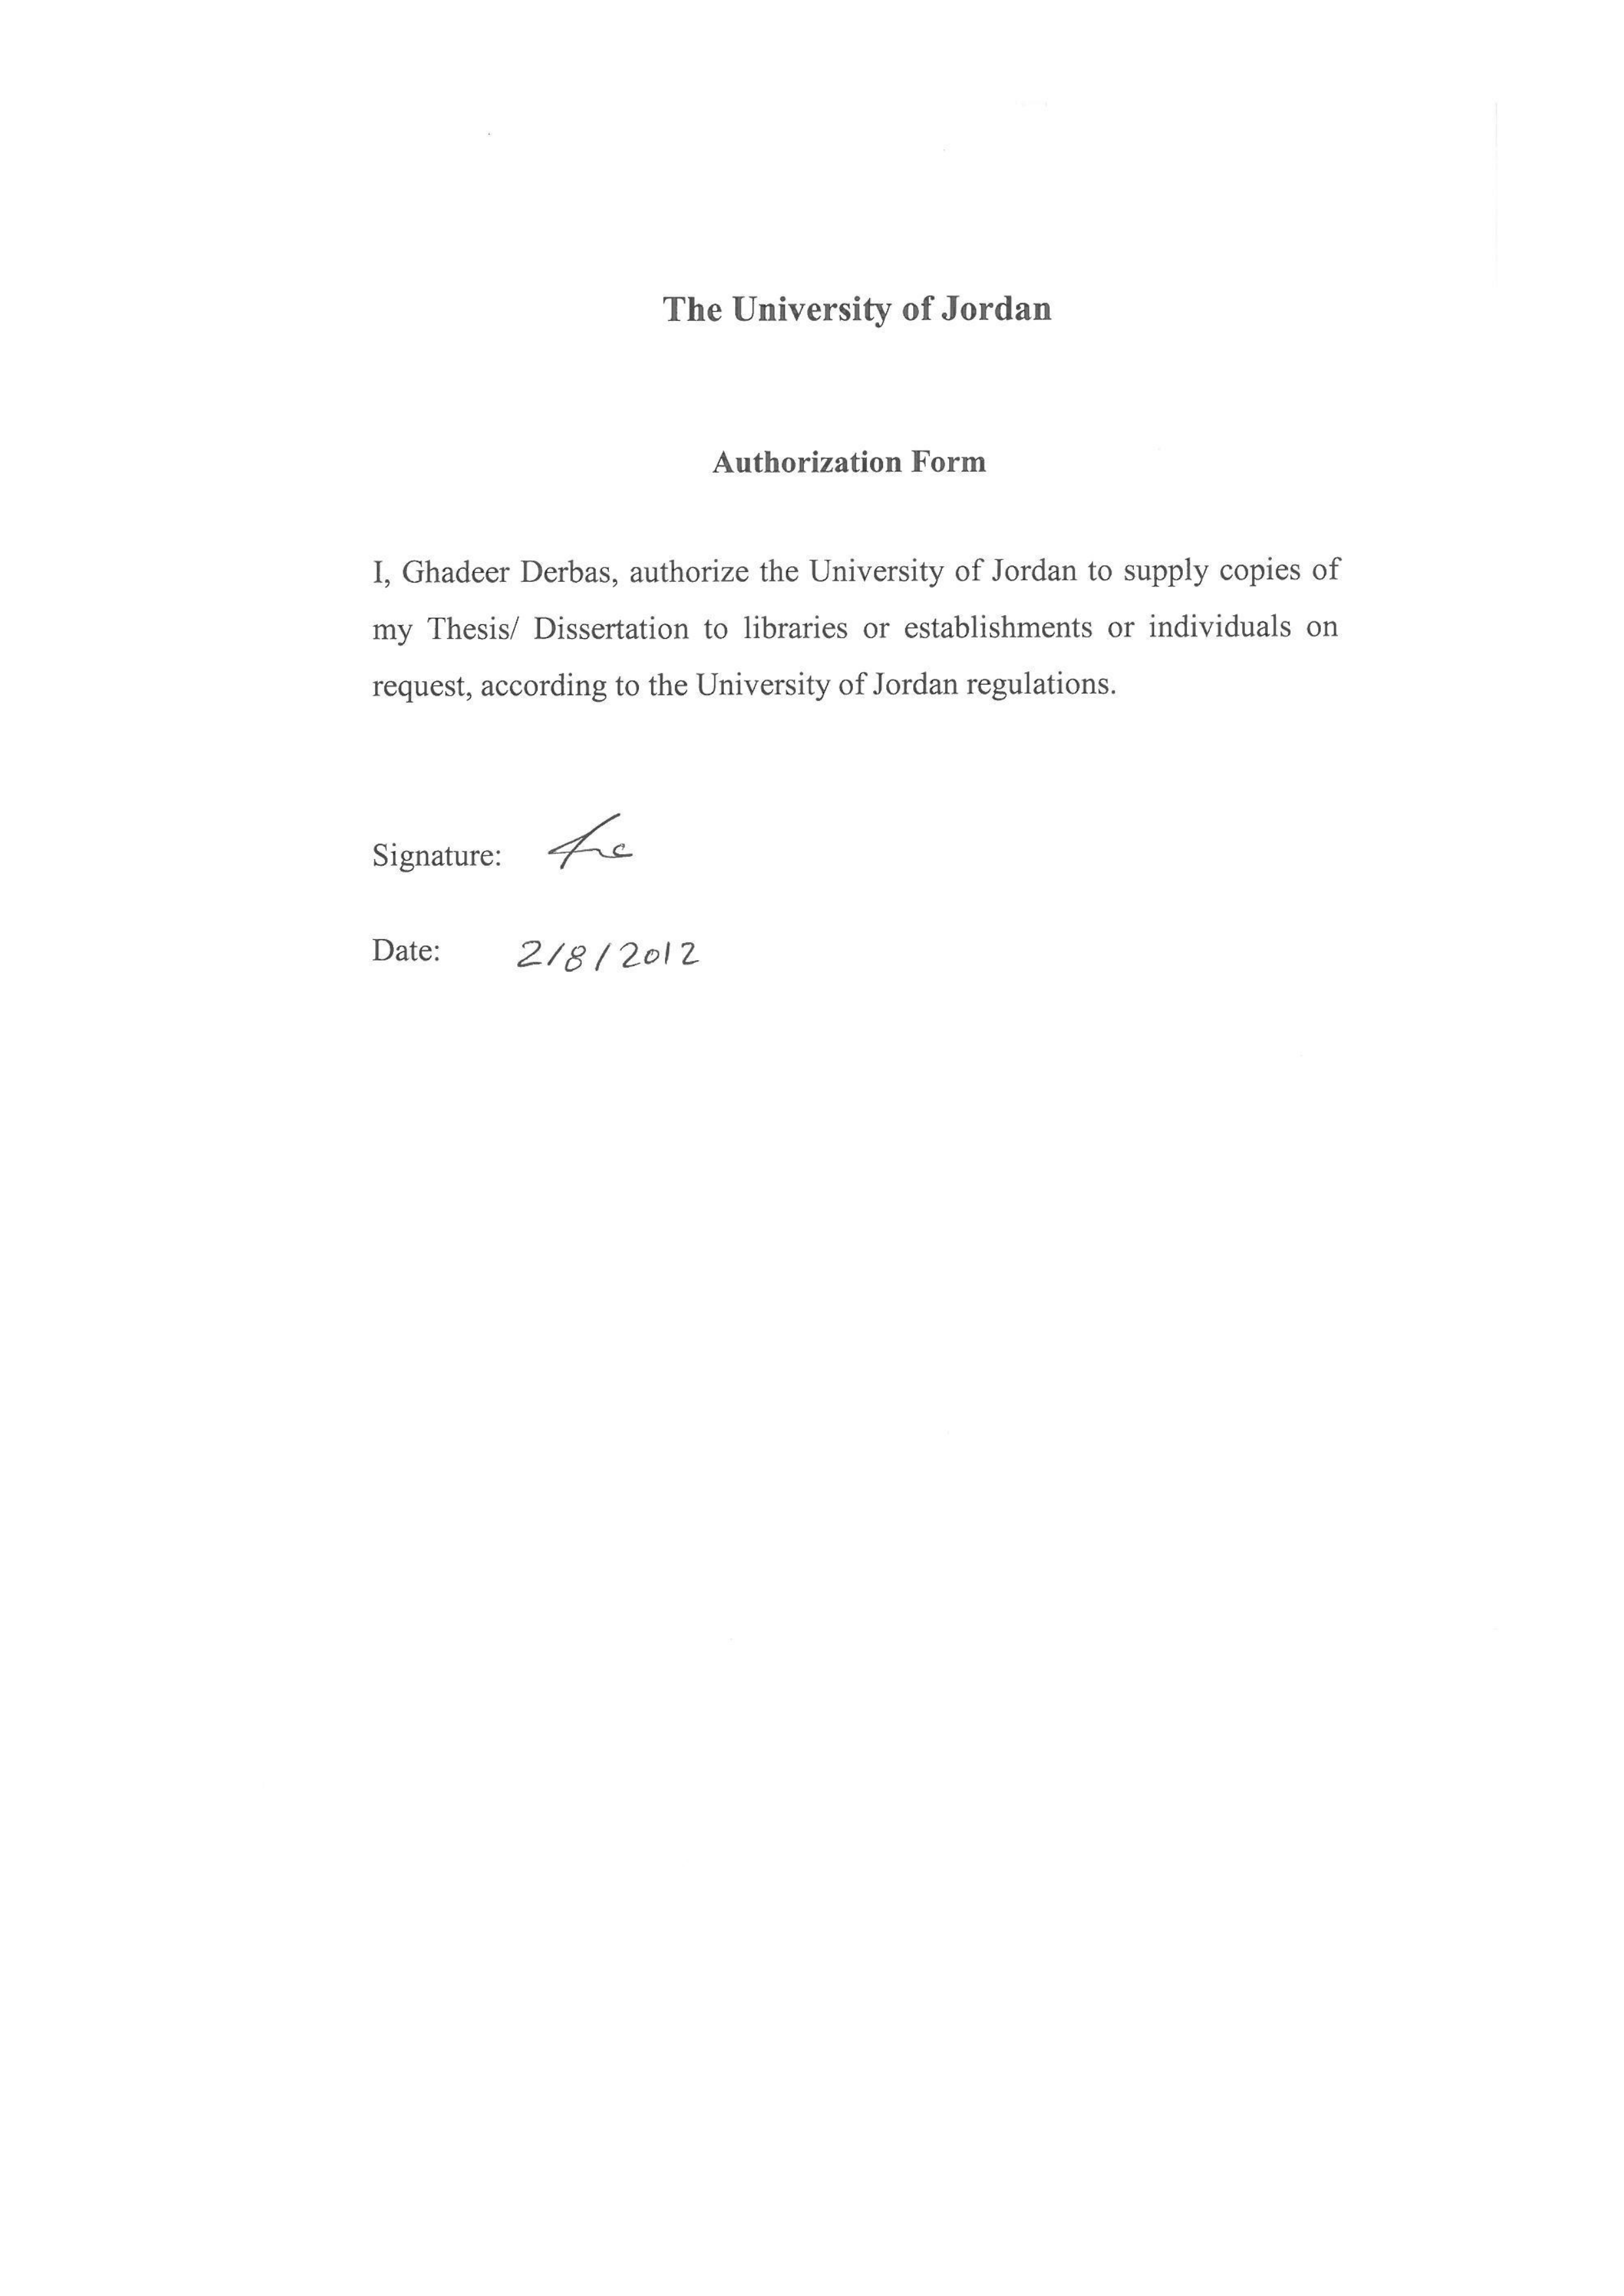 The University of Jordan
Authorization Form
I, Ghadeer Derbas, authorize the University of Jordan to supply copies of
my Thesis/ Dissertation to libraries or establishments or individuals on
request, according to the University of Jordan regulations.
Signature:
Date: 2/8/2012